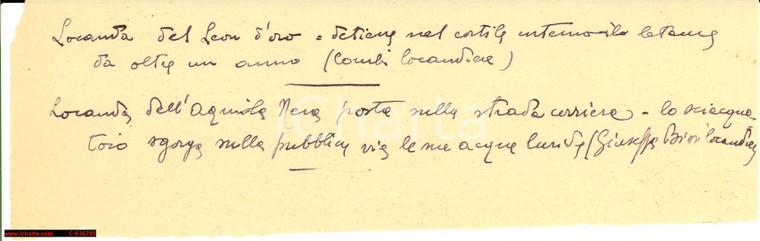 Locanda del Leon d'oro = detiene nel cortile interno il letame
da oltre un anno (Combi locandiere)
Locanda dell'Aquila Nera posta sulla strada corriera - lo sciacqua-
toio sgorga sulla pubblica via le sue acque luride (Giuseppe locandiere
iCharta
www.icharta.com C-036289